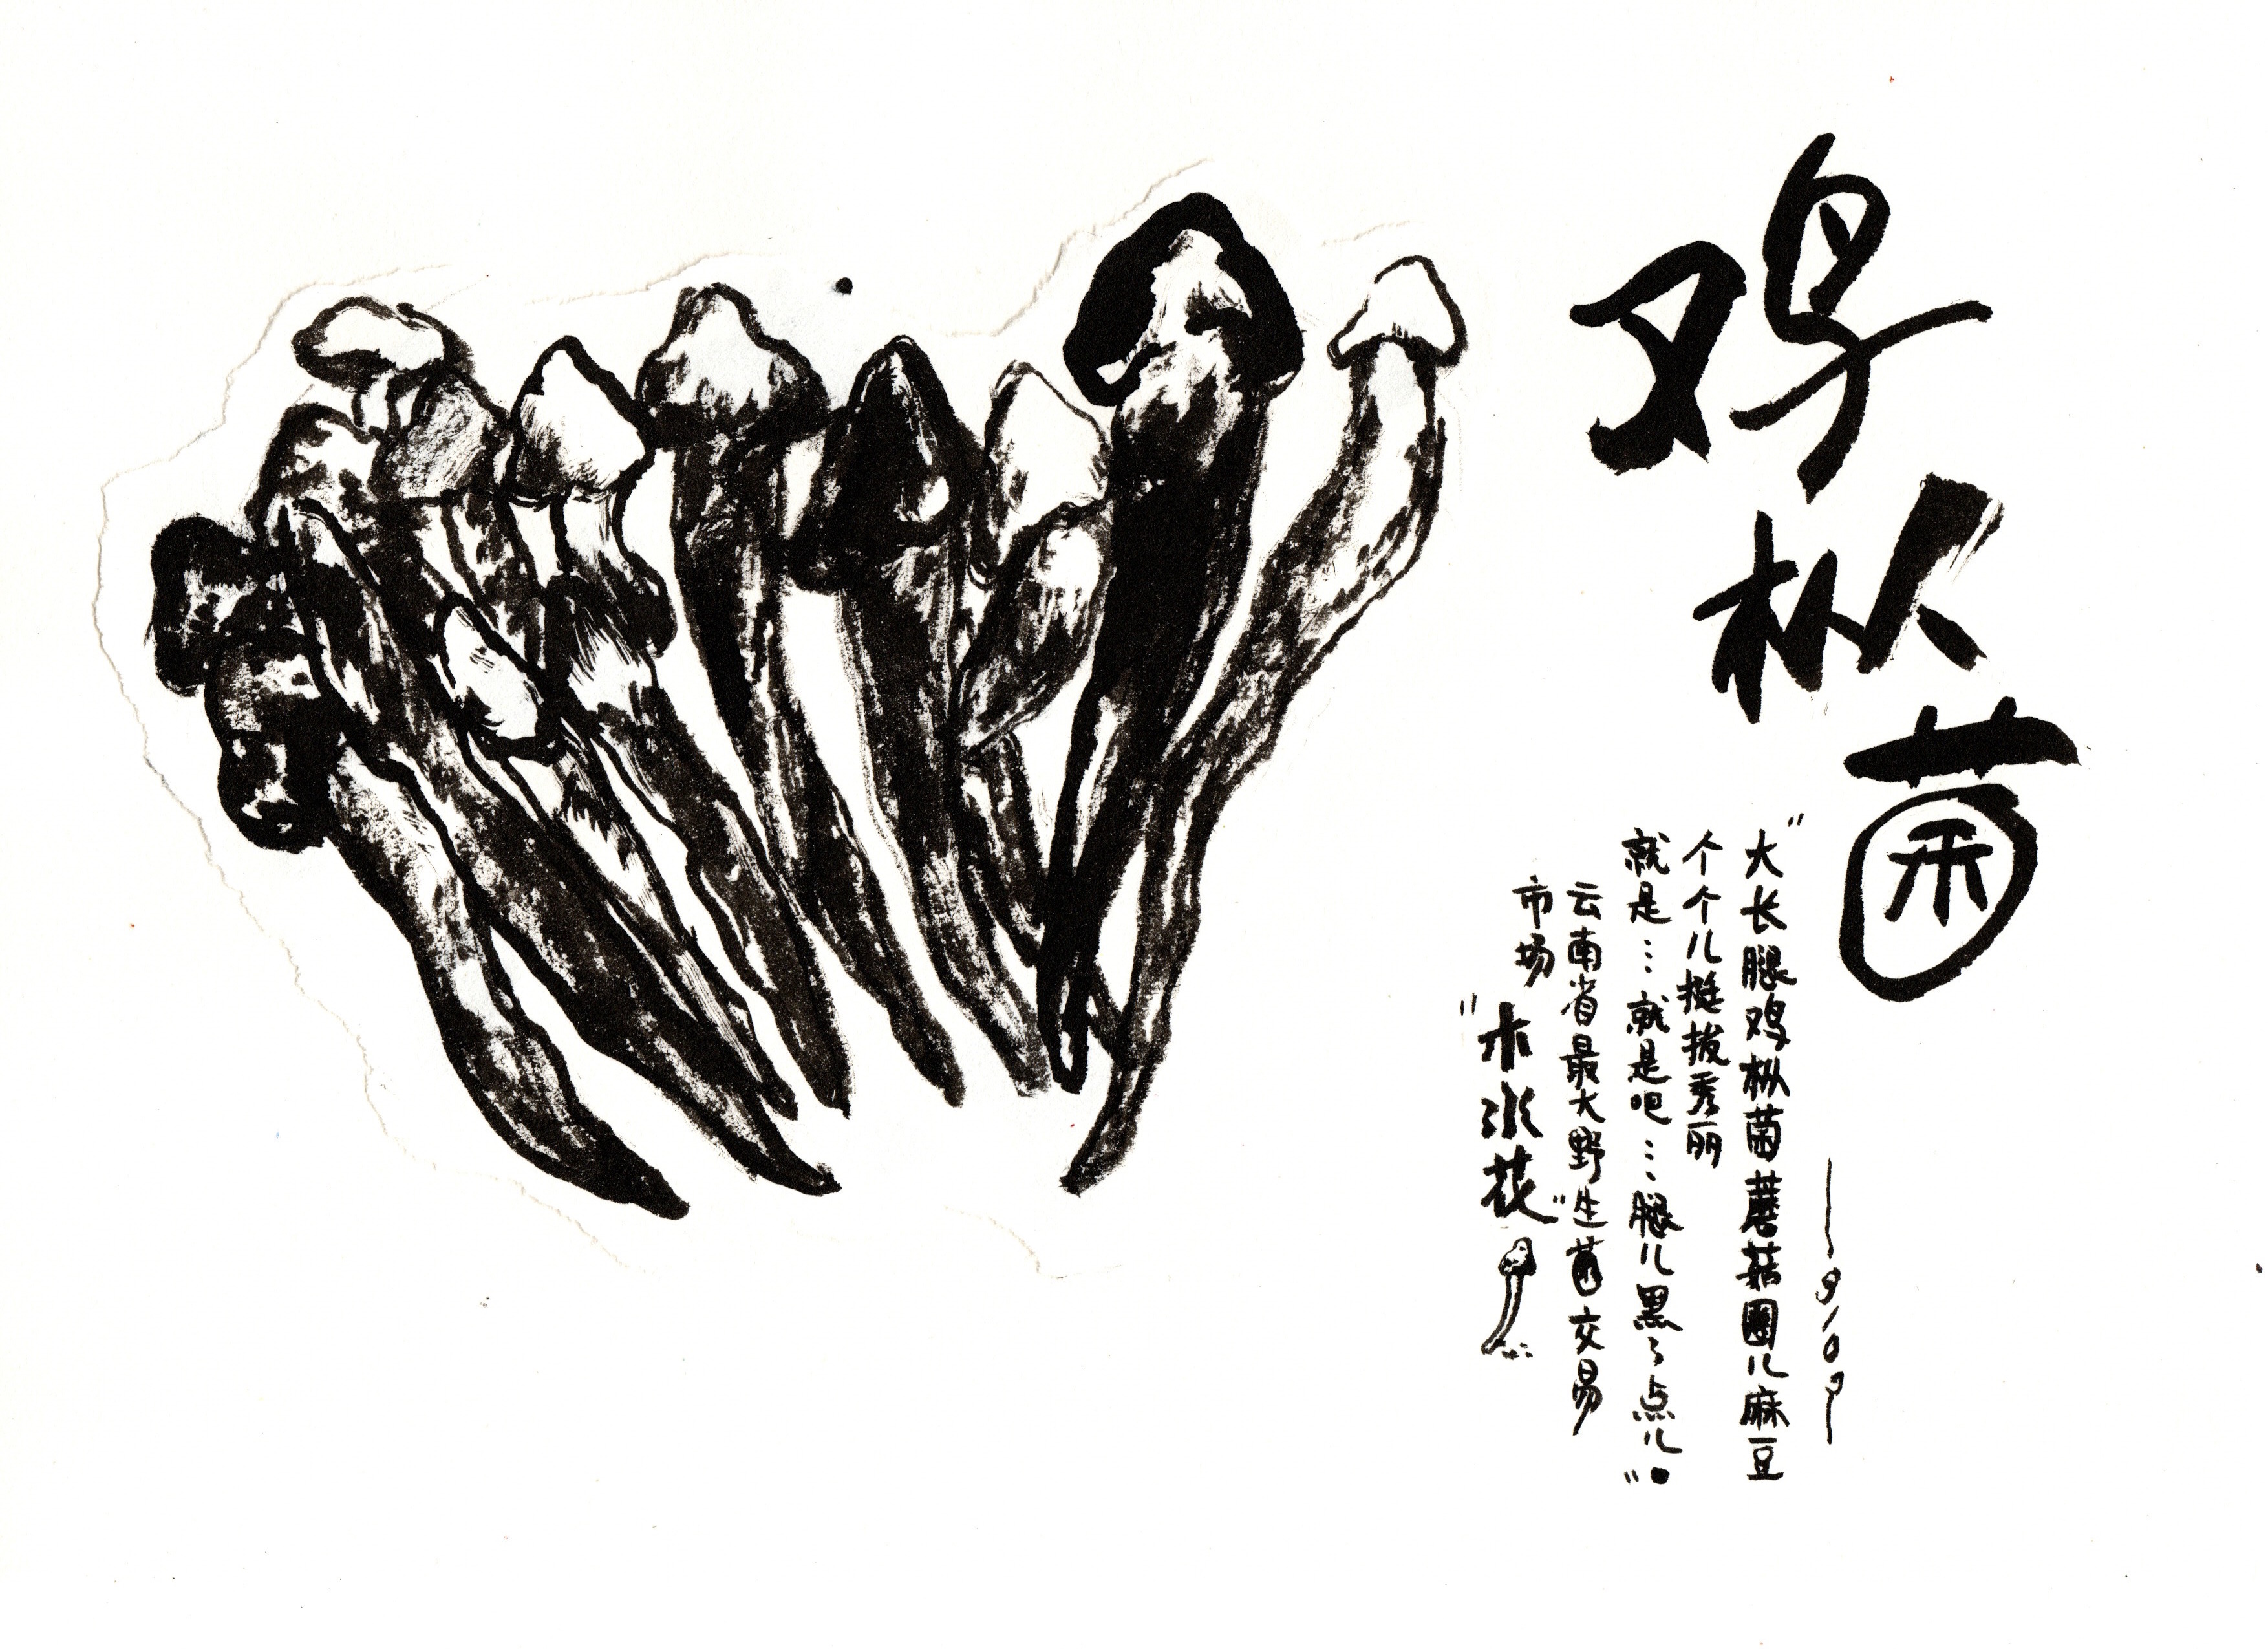 鸡枞菌
“大长腿鸡枞菌蘑菇圈儿麻豆
个个儿挺拔秀丽
就是…就是吧…腿儿黑了点儿。”
云南省最大野生菌交易
市场“木水花”